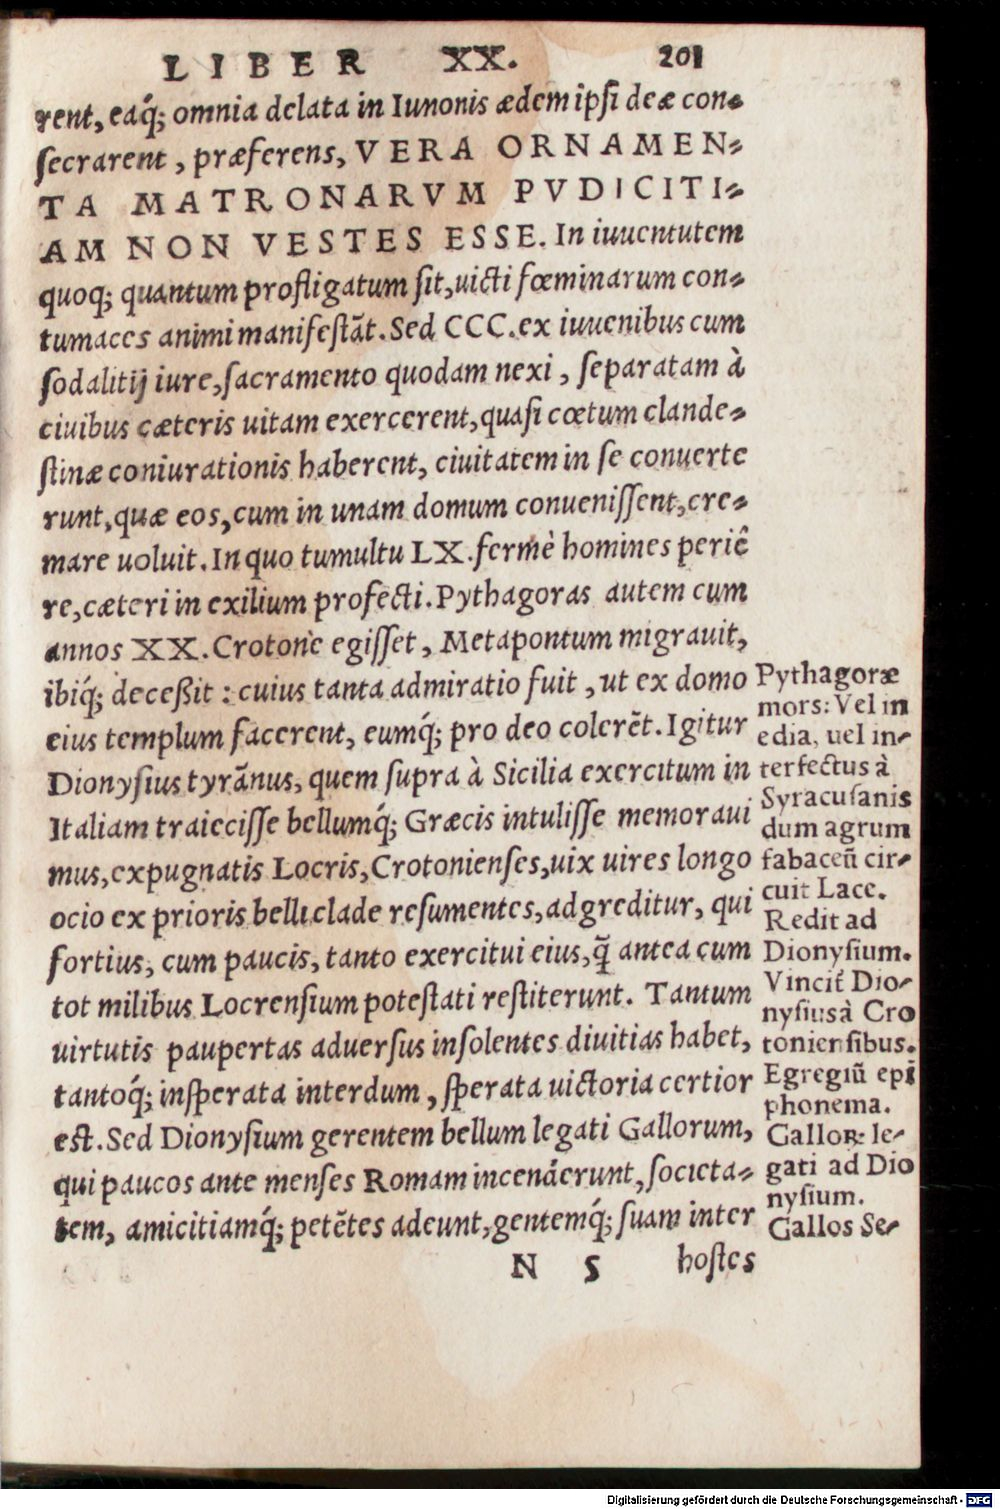 LIBER XX. 201
rent, eaq́; omnia delata in Iunonis ædem ipsi deæ con-
secrarent, præferens, VERA ORNAMEN-
TA MATRONARVM PVDICITI-
AM NON VESTES ESSE. In iuuentutem
quoq; quantum profligatum sit, uicti fœminarum con-
tumaces animi manifestãt. Sed CCC. ex iuuenibus cum
sodalitij iure, sacramento quodam nexi, separatam à
ciuibus cæteris uitam exercerent, quasi cœtum clande-
stinæ coniurationis haberent, ciuitatem in se conuerte
runt, quæ eos, cum in unam domum conuenissent, cre-
mare uoluit. In quo tumultu LX. fermè homines periê
re, cæteri in exilium profecti. Pythagoras autem cum
annos XX. Crotone egisset, Metapontum migrauit,
ibiq́; deceßit: cuius tanta admiratio fuit, ut ex domo
eius templum facerent, eumq́; pro deo colerēt. Igitur
Dionysius tyrãnus, quem supra à Sicilia exercitum in
Italiam traiecisse bellumq́; Græcis intulisse memoraui
mus, expugnatis Locris, Crotonienses, uix uires longo
ocio ex prioris belli clade resumentes, adgreditur, qui
fortius, cum paucis, tanto exercitui eius, q̃ antea cum
tot milibus Locrensium potestati restiterunt. Tantum
uirtutis paupertas aduersus insolentes diuitias habet,
tantoq́; insperata interdum, sperata uictoria certior
est. Sed Dionysium gerentem bellum legati Gallorum,
qui paucos ante menses Romam incenderunt, societa-
tem, amicitiamq́; petētes adeunt, gentemq́; suam inter
N 5 hostes
Pythagoræ
mors: Vel in
edia, uel in-
terfectus à
Syracusanis
dum agrum
fabaceū cir-
cuit Lace.
Redit ad
Dionysium.
Vincit Dio-
nysius à Cro
toniensibus.
Egregiū epi
phonema.
Galloꝝ le-
gati ad Dio
nysium.
Gallos Se-
Digitalisierung gefördert durch die Deutsche Forschungsgemeinschaft - DFG